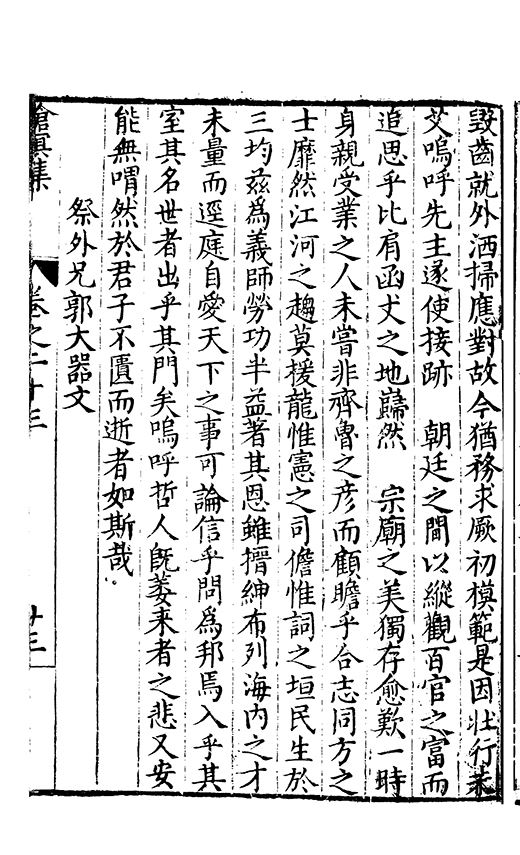 毀齒就外洒掃應對故今猶務求厥初模範是因壯行未
艾嗚呼先主遂使接跡　朝廷之間以縱觀百官之富而
追思乎比肩函丈之地巋然　宗廟之美獨存愈歎一時
身親受業之人未嘗非齊魯之彦而顧瞻乎合志同方之
士靡然江河之趨莫援龍惟憲之司儋惟詞之垣民生於
三均茲爲義師勞功半益著其恩雖搢紳布列海内之才
未量而逕庭自愛天下之事可論信乎問爲邦焉入乎其
室其名世者出乎其門矣嗚呼哲人既萎来者之悲又安
能無喟然於君子不匱而逝者如斯哉
祭外兄郭大器文
滄溟集
卷之二十三
廿三